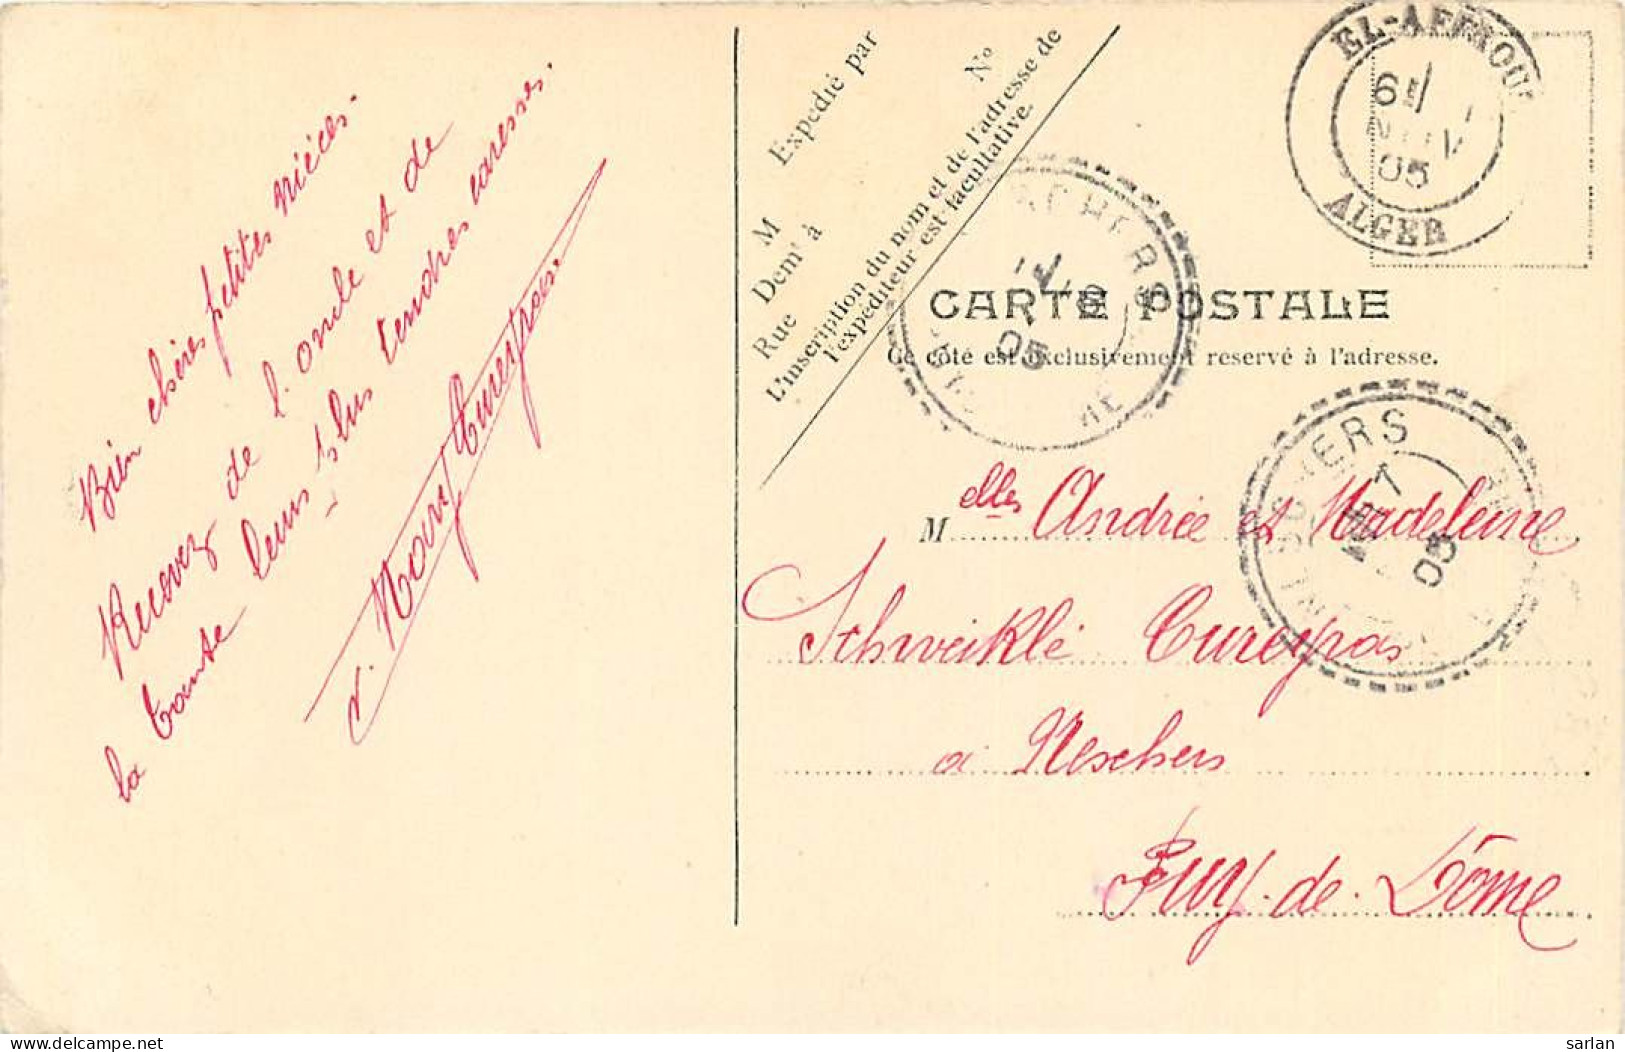 Bien chères petites nièces.
Recevez de l'oncle et de
la tante leurs plus tendres caresses.
Expedié par
M
Demt à
Rue
No
L'inscription du nom et de l'adresse de
l'expéditeur est facultative.
EL-AFFROUN
05
ALGER
NESCHERS
05
CARTE POSTALE
Ce côté est exclusivement reservé à l'adresse.
NESCHERS
7
05
Melles Andrée et Madeleine
Schweiklé Cureyras
a Neschers
Puy-de-Dôme
sarlan
delcampe.net